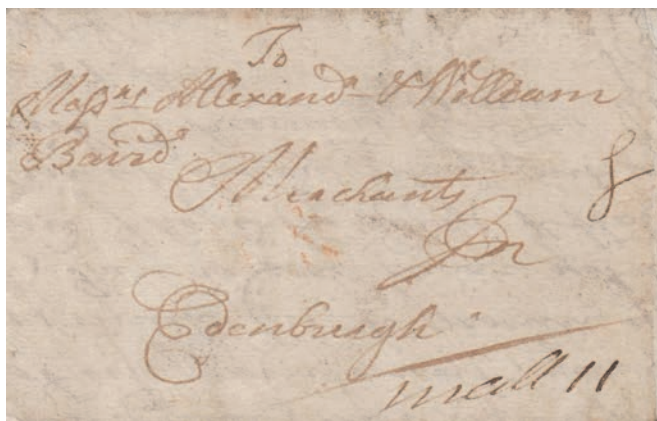 To
Messrs Allexandr & William
Baird
Merchants
In
Edenburgh
8